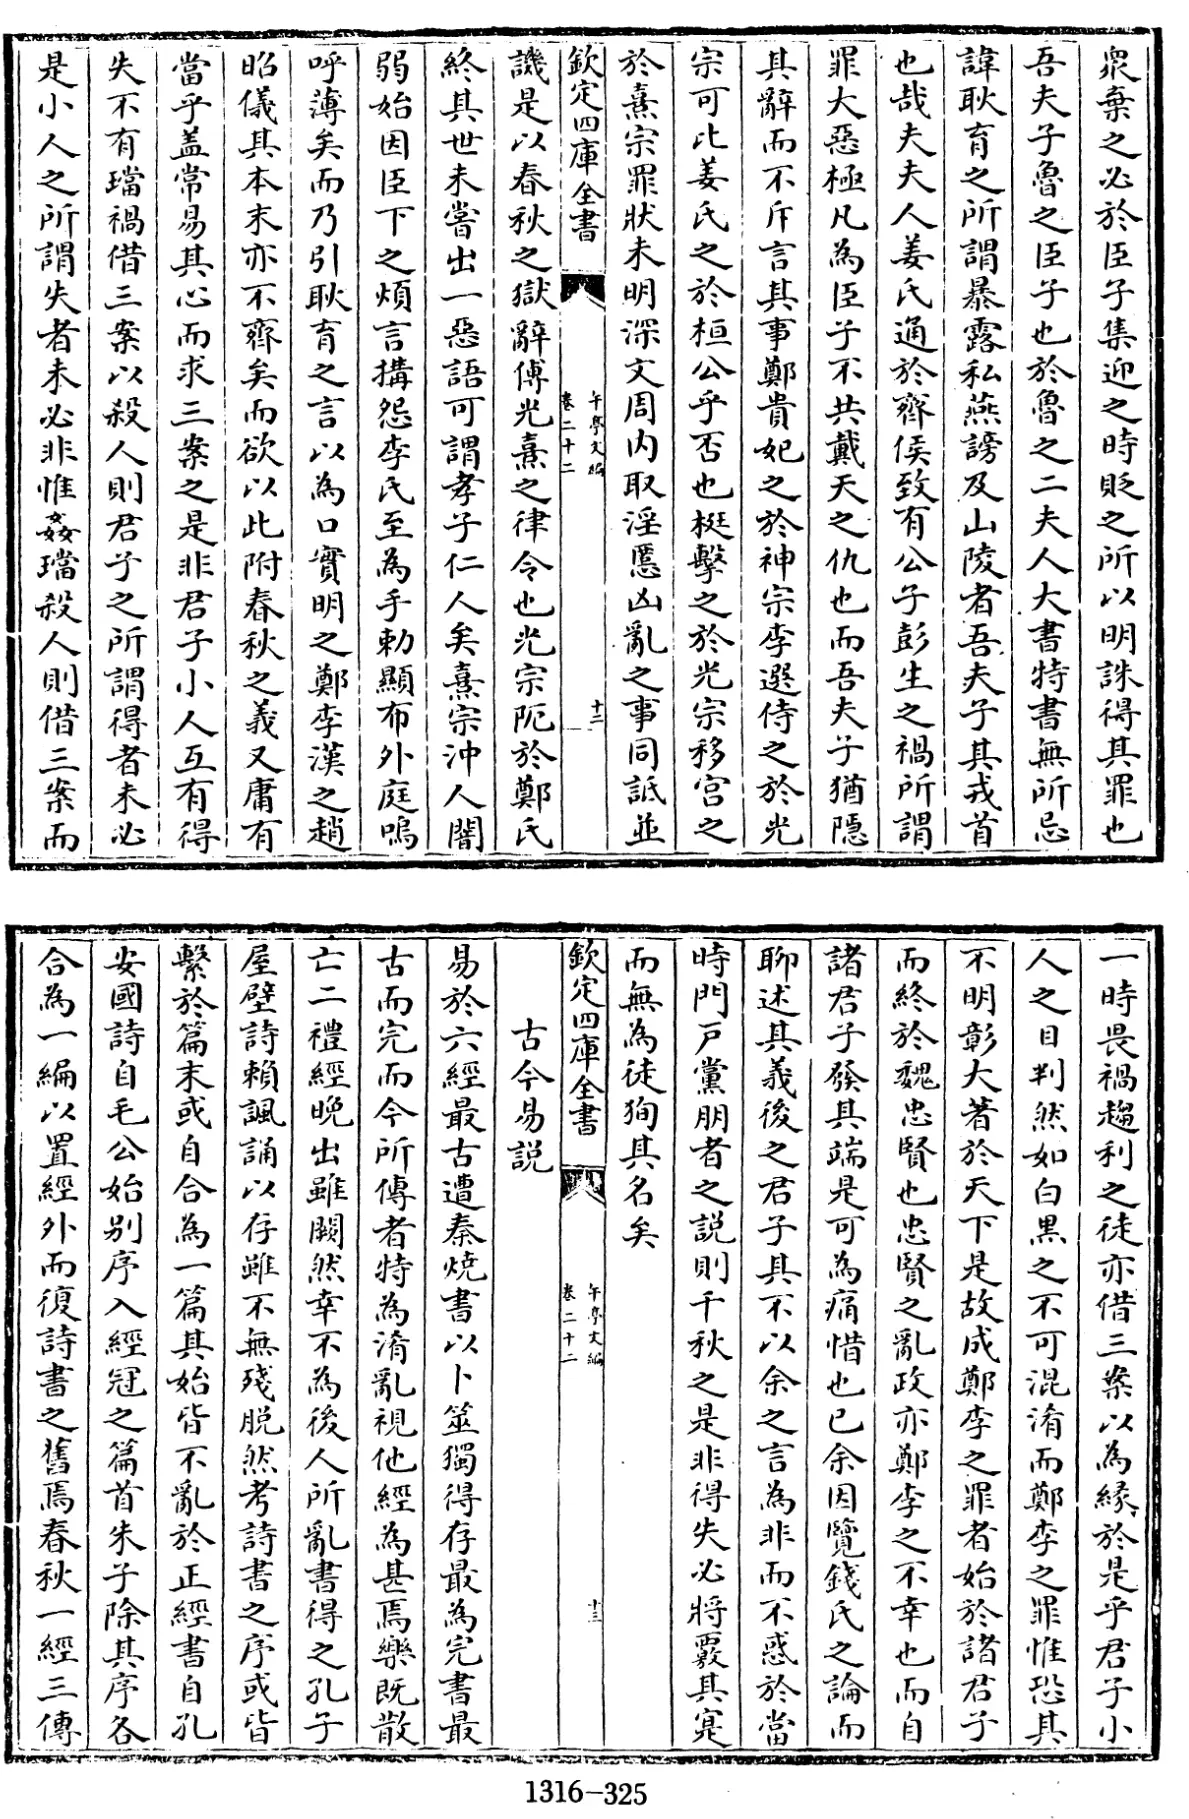 衆棄之必於臣子集迎之時貶之所以明誅得其罪也
吾夫子魯之臣子也於魯之二夫人大書特書無所忌
諱耿育之所謂暴露私燕謗及山陵者吾夫子其戎首
也哉夫夫人姜氏通於齊侯致有公子彭生之禍所謂
罪大惡極凡為臣子不共戴天之仇也而吾夫子猶隱
其辭而不斥言其事鄭貴妃之於神宗李選侍之於光
宗可比姜氏之於桓公乎否也梃擊之於光宗移宮之
於熹宗罪狀未明深文周内取淫慝凶亂之事同詆並
欽定四庫全書
午亭文編
卷二十二
十二
譏是以春秋之獄辭傅光熹之律令也光宗阨於鄭氏
終其世未嘗出一惡語可謂孝子仁人矣熹宗沖人闇
弱始因臣下之煩言搆怨李氏至為手勅顯布外庭嗚
呼薄矣而乃引耿育之言以為口實明之鄭李漢之趙
昭儀其本末亦不齊矣而欲以此附春秋之義又庸有
當乎盖常易其心而求三案之是非君子小人互有得
失不有璫禍借三案以殺人則君子之所謂得者未必
是小人之所謂失者未必非惟姦璫殺人則借三案而
一時畏禍趨利之徒亦借三案以為緣於是乎君子小
人之目判然如白黑之不可混淆而鄭李之罪惟恐其
不明彰大著於天下是故成鄭李之罪者始於諸君子
而終於魏忠賢也忠賢之亂政亦鄭李之不幸也而自
諸君子發其端是可為痛惜也已余因覽錢氏之論而
聊述其義後之君子其不以余之言為非而不惑於當
時門戸黨朋者之説則千秋之是非得失必將覈其寔
而無為徒狥其名矣
欽定四庫全書
午亭文編
卷二十二
十三
古今易説
易於六經最古遭秦燒書以卜筮獨得存最為完書最
古而完而今所傳者特為淆亂視他經為甚焉樂既散
亡二禮經晚出雖闕然幸不為後人所亂書得之孔子
屋壁詩賴諷誦以存雖不無殘脱然考詩書之序或皆
繫於篇末或自合為一篇其始皆不亂於正經書自孔
安國詩自毛公始别序入經冠之篇首朱子除其序各
合為一編以置經外而復詩書之舊焉春秋一經三傳
1316-325